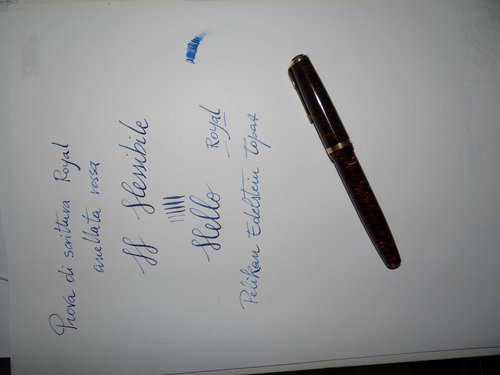 Prova di scrittura Royal
anellata rossa
ff flessibile
Hello Royal
Pelikan Edelstein topaz